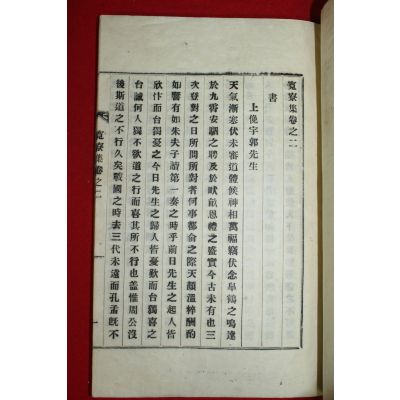 寬寮集卷之二
書
上俛宇郭先生
天氣漸寒伏未審道體候神相萬福竊伏念皐鶴之鳴達
於九霄安駟之聘及於畎畝恩禮之盛實今古未有也三
次登對之日所問所對者何事都俞之際天顔溫粹酬酌
如響有如朱夫子請第一奏之時乎前日先生之起人皆
欣忭而台獨憂之今日先生之歸人皆憂歎而台獨喜之
台誠何人獨不欲道之行而喜其所不行也盖惟周公沒
後斯道之不行久矣戰國之時去三代未遠而孔孟旣不
寬寮集卷之二
一